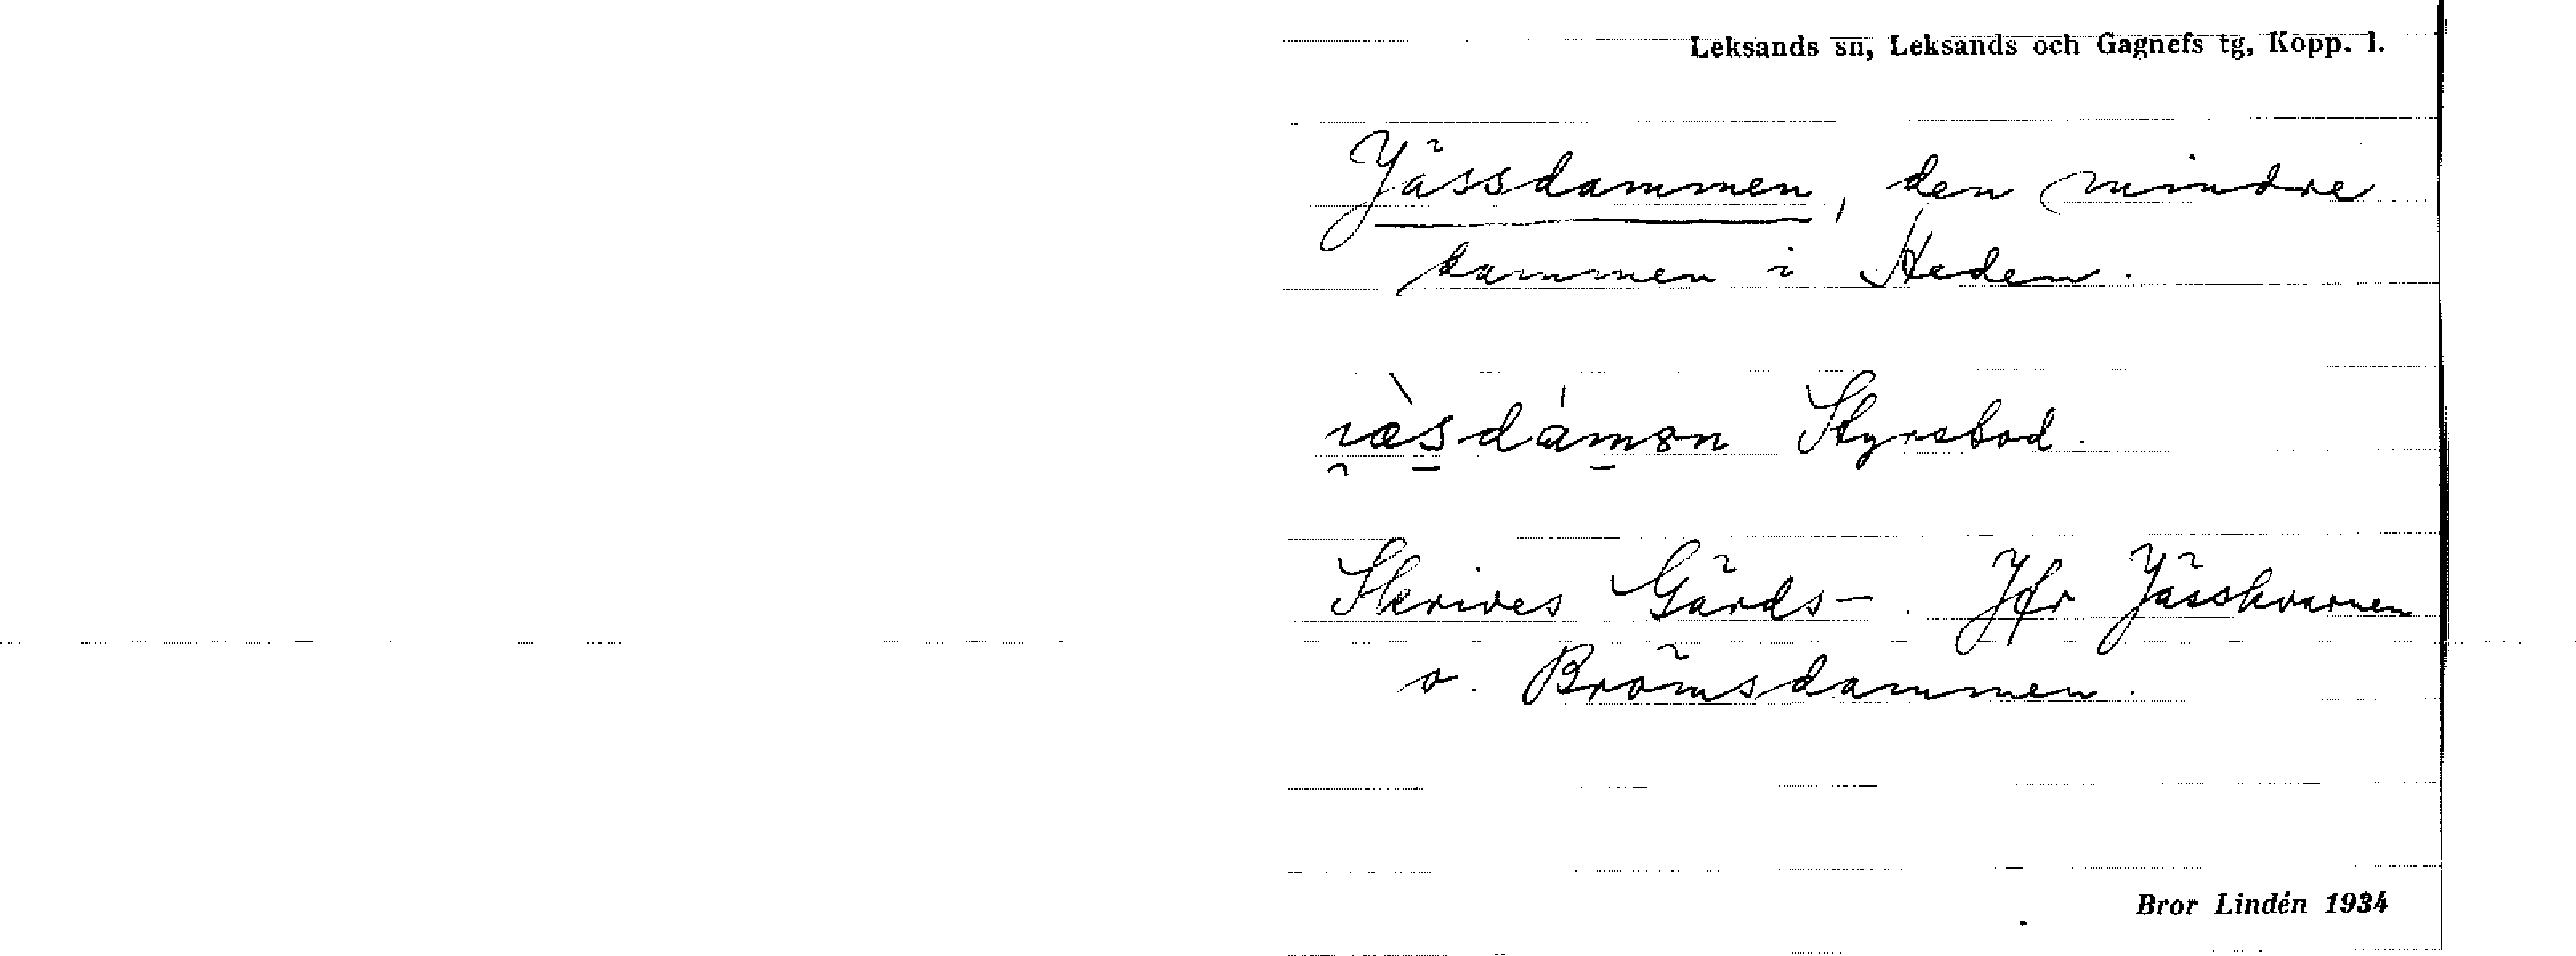 Leksands sn, Leksands och Gagnefs tg, Kopp. l.
Jässdammen, den mindre
dammen i Heden.
Styrsbod.
Skrives Gärds-. Jfr Jässkvarnen
o. Brömsdammen.
Bror Lindén 1934